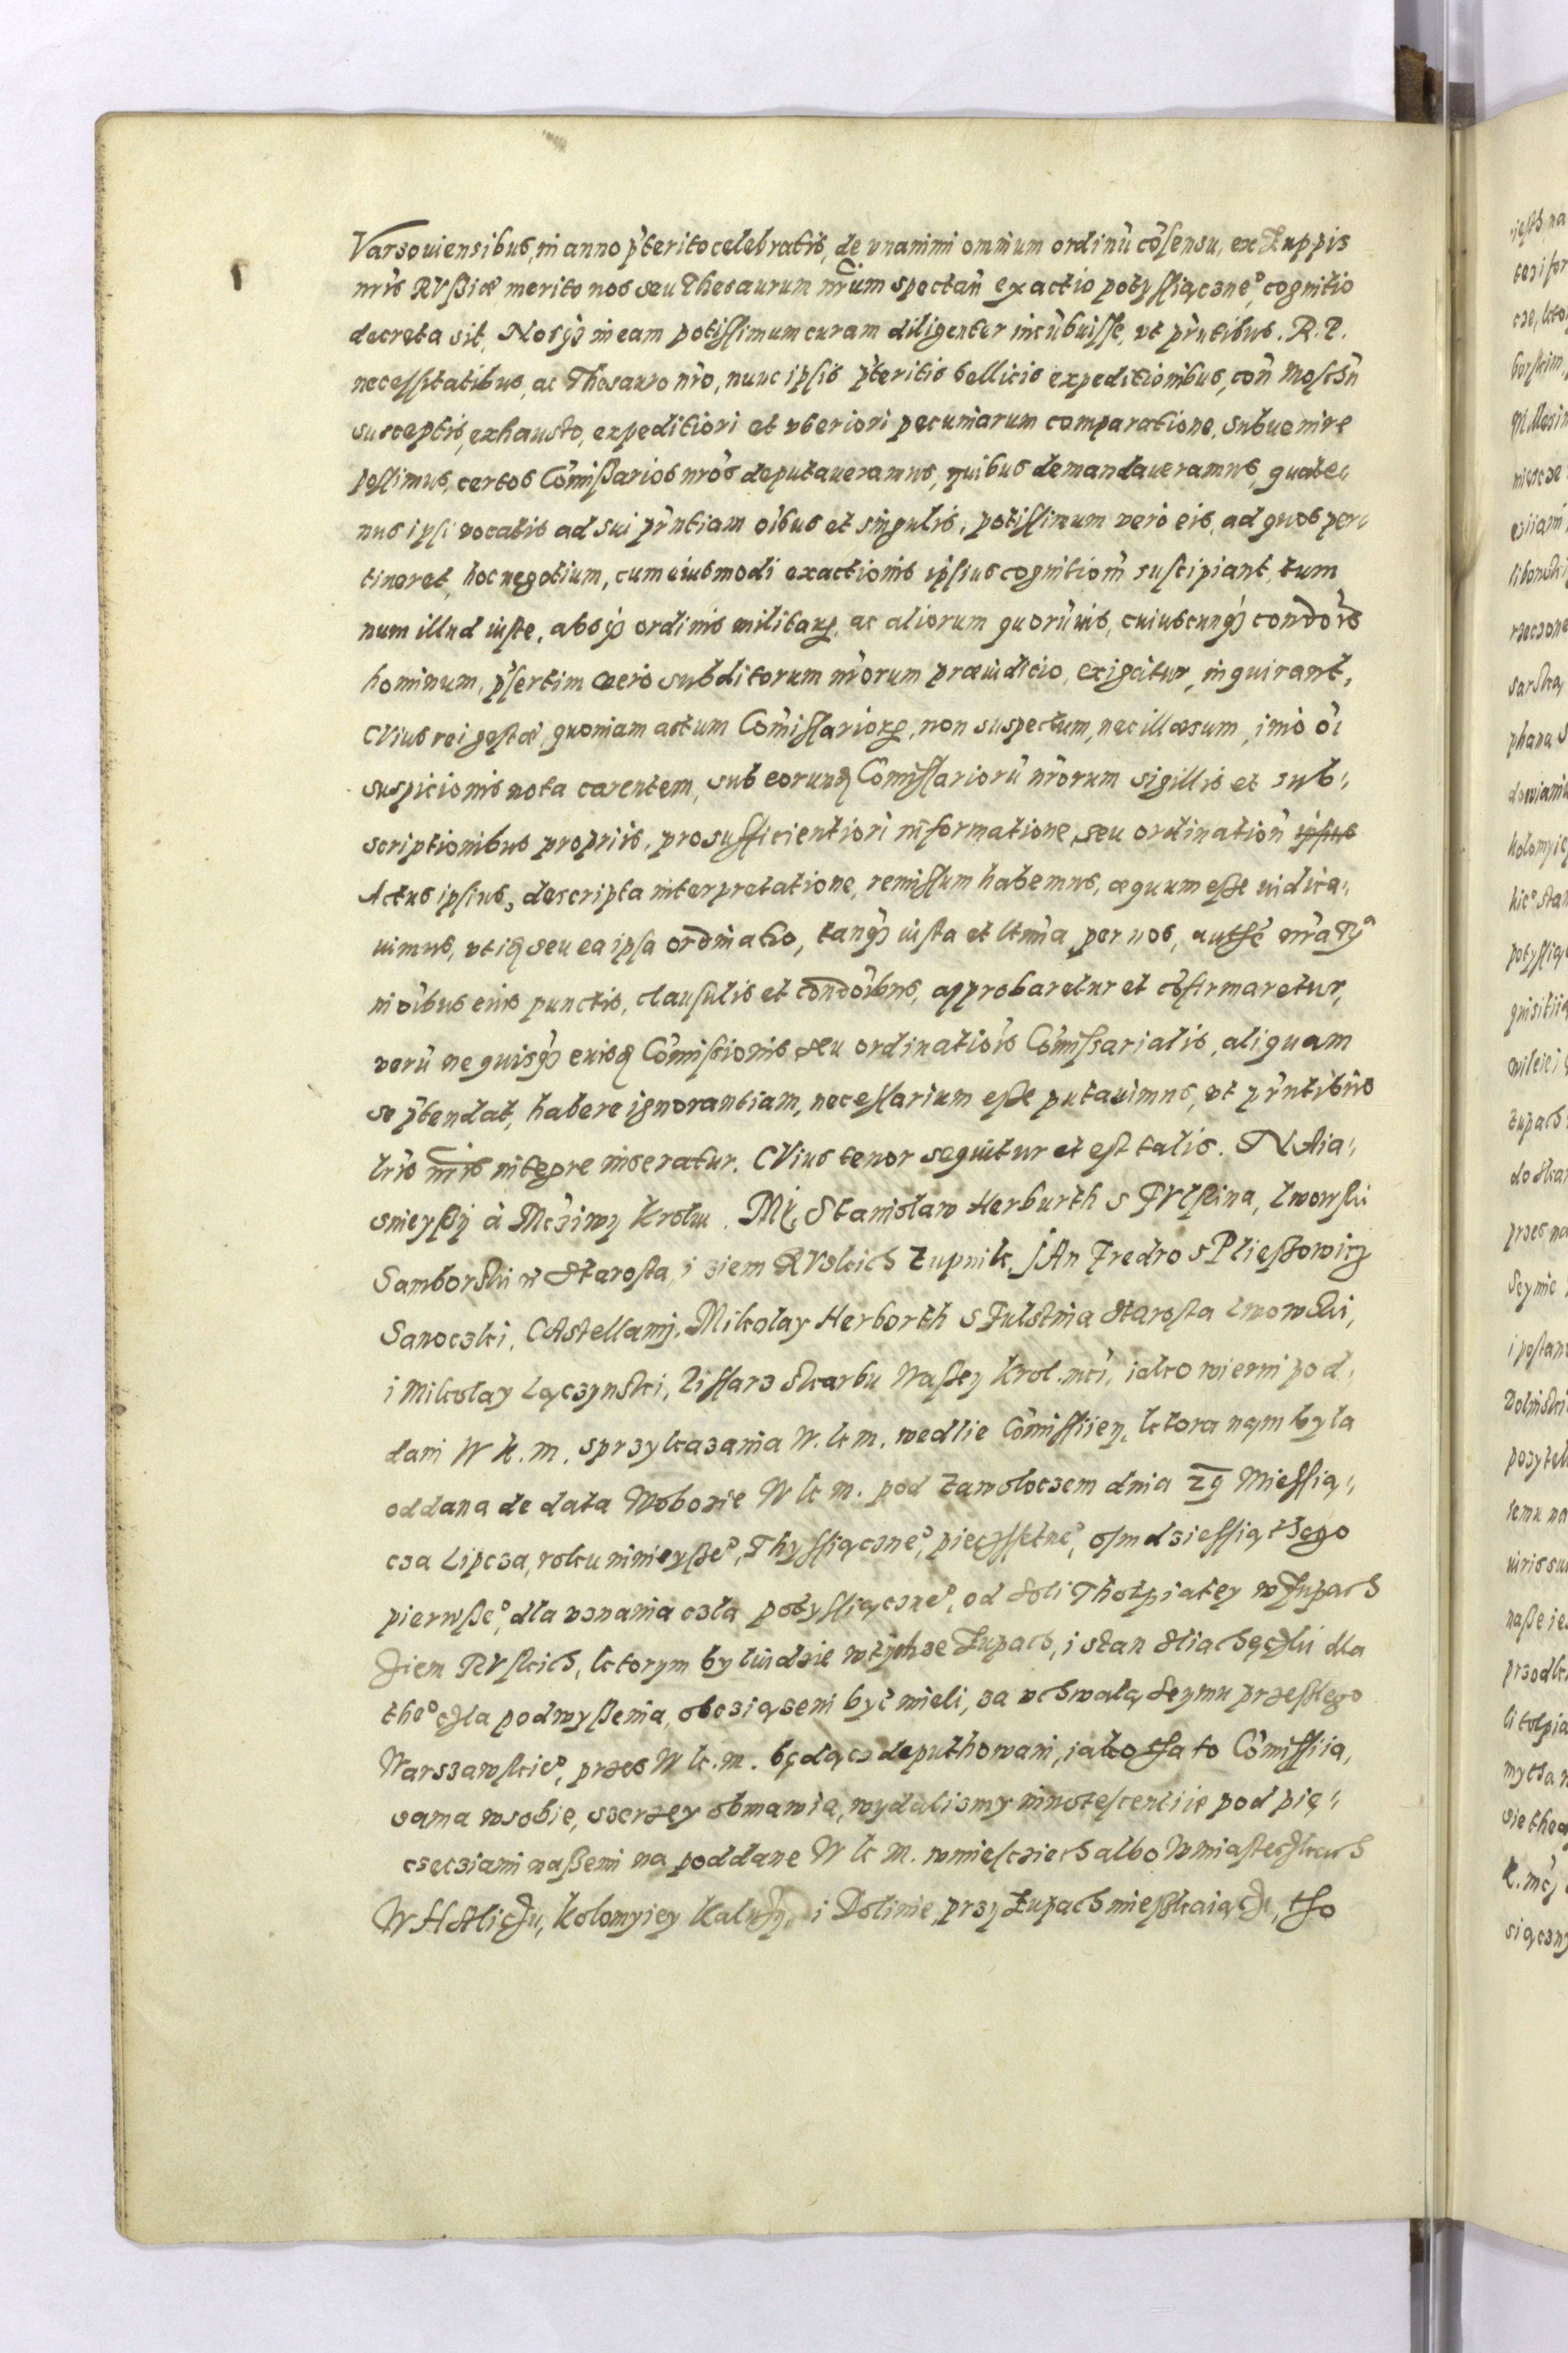 Varsouiensibus, in anno p̃terito celebratis, de vnanimi omnium ordinũ cõsensu, ex Zuppis
nr̃is RVßiæ merito nos seu Thesaurum nr̃um spectañ exactio potyſſiączne°, cognitio
decreta sit, Nosq́ɜ in eam potiſſimum curam diligenter incũbuiſſe, vt pr̃ntibus. R. P.
neceſſitatibus, ac Thesauro nr̃o, nunc ipſis p̃teritis bellicis expeditionibus, coñ Moſchũ
susceptis, exhausto, expeditiori et vberiori pecuniarum comparatione, subuenire
poſſimus, certos Cõmißarios nr̃os deputaueramus, quibus demandaueramus, quate˶
nus ipſi vocatis ad sui pr̃ntiam oĩbus et singulis, potiſſimum vero eis, ad quos per˶
tineret, hoc negotium, cum eiusmodi exactionis ipſius cognitioñ suſcipiant, tum
num illud iuſte, absq́ɜ ordinis militarꝝ, ac aliorum quorũuis, cuiuscunq́ɜ condoĩs
hominum, p̃ſertim vero subditorum nr̃orum præiudicio, exigatur, inquirant,
CVius rei geſtæ, quoniam actum Cõmiſſariorꝝ, non suspectum, nec illæsum, imo oĩ
suspicionis nota carentem, sub eorundꝫ Cõmiſſariorũ nr̃orum sigillis et sub˶
scriptionibus propriis, pro sufficientiori informatione, seu ordinatioñ ipſius
Actus ipſius, descripta interpretatione, remiſſum habemus, æquum eſſe iudica˶
uimus, vti ꝗ seu ea ipſa ordinatio, tanq́ɜ iuſta et ltm̃a per nos,
in oĩbus eius punctis, clauſulis et condoĩbus, approbaretur et cõfirmaretur,
verũ ne quisq́ɜ eiusdꝫ Cõmiſsionis seu ordinatioĩs Cõmiſsarialis, aliquam
se p̃tendat, habere ignorantiam, neceſſarium eſſe putauimus, vt pr̃ntibus
lr̃is nr̃is integre inseratur. CVius tenor sequitur et eſt talis. NAia˶
snieyßy à Mčziwy Krolu. My, Stanislaw Herburth s FVlſtina, lwowſki
Samborſki ẽt Staroſta, i ziem RVskich Zupnik, JAn Fredro s Plieſzowicz
Sanoczki, CAstellani, Mikolay Herborth s Fulstina Staroſta lwowſki,
i Mikolay Lączynſki, Piſſarz Skarbu Waßey Krol. mči, iako wierni pod˶
dani W K. m. s przykazania W. k m. wedlie Cõmiſſiiey, ktora nąm byla
oddana de data Wobozie W k m. pod Zawoloczem dnia 29 Mieſſią˶
cza Lipcza, roku ninieyße°, Thyſſiączne°, pięczſſetne°, oſmdzieſſiąthego
pierwße°, dla vznania czla potyſſiączne°, od Soli Tholpiatey w Zupach
Ziem RVſkich, ktorym by liudzie w tychze Zupach, i stan Sliachęczki dla
the° czla podwyßenia, obcziązeni być mieli, za vchwalą Seymu przeſzlego
Warszawſkie°, przes W k. m. będącz deputhowani, iako tha to Cõmiſſiia,
sama w sobie, szerzey obmawia, wydalismy innoteſcentiie pod pię˶
częcziami naßemi na poddane W k m. w mieſcziech albo w miaſteczkach
W HAliczu, Kolomyiey Kaluſzy, i Dolinie, przy Zupach mieſzkaiącze, tho